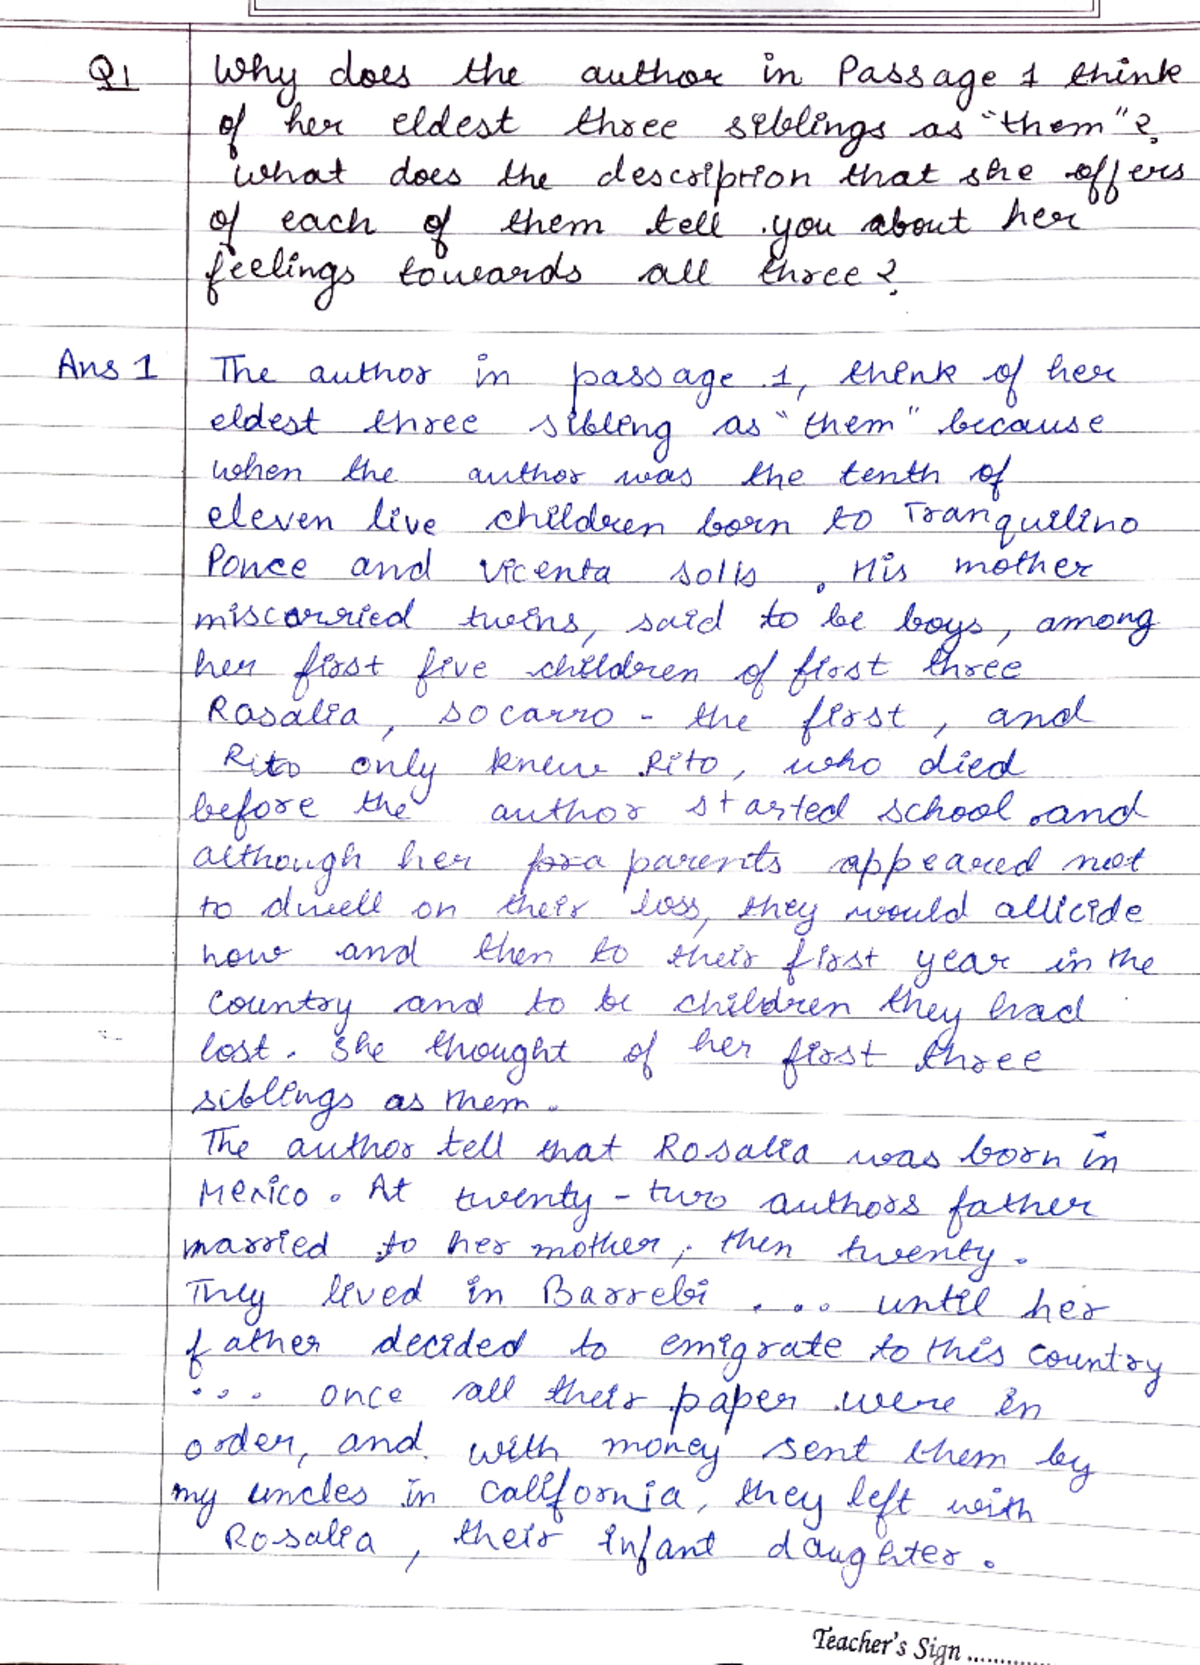 Q1 Why does the author in Passage 1 think
of her eldest three siblings as "them"?
what does the description that she offers
of each of them tell you about her
feelings towards all three?
Ans 1 The author in passage 1, think of her
eldest three sibling as "them" because
when the author was the tenth of
eleven live children born to Tranquilino
Ponce and Vicenta solis. His mother
miscarried twins, said to be boys, among
her first five children of first three
Rosalia, socarro - the first, and
Rito only knew Rito, who died
before the author started school and
although her parents appeared not
to dwell on their loss, they would allicide
now and then to their first year in the
country and to be children they had
lost. She thought of her first three
siblings as them.
The author tell that Rosalia was born in
Mexico. At twenty-two authors father
married to her mother, then twenty.
They lived in Barrebi .... until her
father decided to emigrate to this country
.... once all their paper were in
order, and with money sent them by
my uncles in California, they left with
Rosalia, their infant daughter.
Teacher's Sign ............